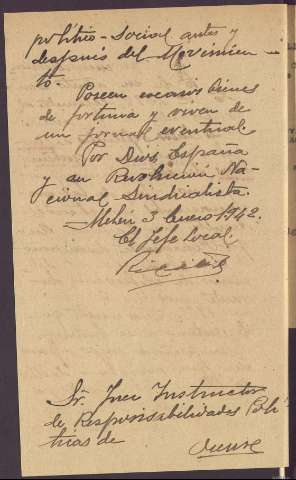 político-social antes y
después del Movimien
to.
Poseen escasos bienes
de fortuna y viven de
un jornal eventual.
Por Dios, España
y su Revolución Na-
cional Sindicalista.
3 Enero 1942.
El Jefe Local
Sr. Juez Instructor
de Responsabilidades Polí
ticas de
Orense